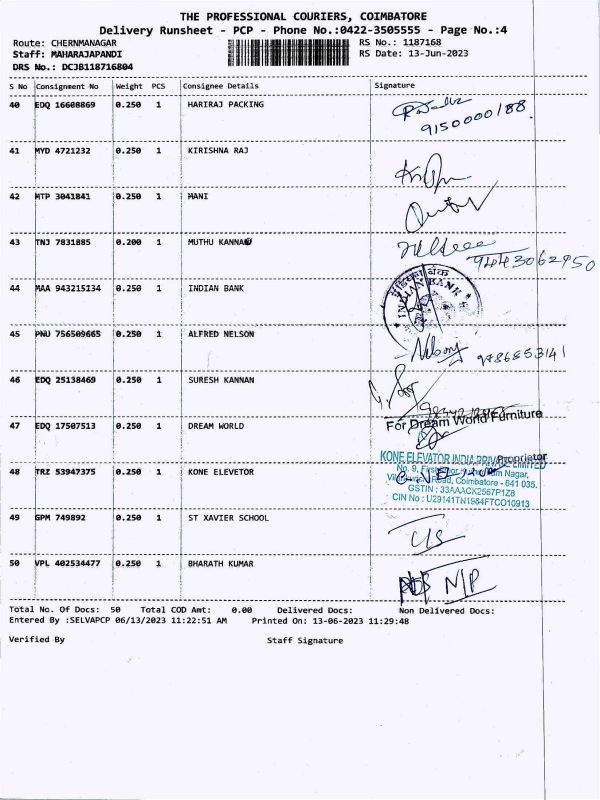 THE PROFESSIONAL COURIERS, COIMBATORE
Delivery Runsheet - PCP - Phone No.:0422-3505555 - Page No.:4
Route: CHERNMANAGAR RS No.: 1187168
Staff: MAHARAJAPANDI RS Date: 13-Jun-2023
DRS No.: DCJB118716804
S No Consignment No Weight PCS Consignee Details Signature
40 EDQ 16608869 0.250 1 HARIRAJ PACKING
9150000188
41 MYD 4721232 0.250 1 KIRISHNA RAJ
42 MTP 3041841 0.250 1 MANI
43 TNJ 7831885 0.200 1 MUTHU KANNAN
9443062950
44 MAA 943215134 0.250 1 INDIAN BANK
INDIAN BANK
45 PNU 756509665 0.250 1 ALFRED NELSON
Nelson 9786853141
46 EDQ 25138469 0.250 1 SURESH KANNAN
47 EDQ 17507513 0.250 1 DREAM WORLD
For Dream World Furniture
Proprietor
KONE ELEVATOR INDIA PRIVATE LIMITED
48 TRZ 53947375 0.250 1 KONE ELEVETOR
No. 9, Nagar,
Road, Coimbatore - 641 035.
GSTIN : 33AAACK2567P1Z8
CIN No : U29141TN1984FTCO10913
49 GPM 749892 0.250 1 ST XAVIER SCHOOL
50 VPL 402534477 0.250 1 BHARATH KUMAR
N/P
Total No. Of Docs: 50 Total COD Amt: 0.00 Delivered Docs: Non Delivered Docs:
Entered By :SELVAPCP 06/13/2023 11:22:51 AM Printed On: 13-06-2023 11:29:48
Verified By Staff Signature